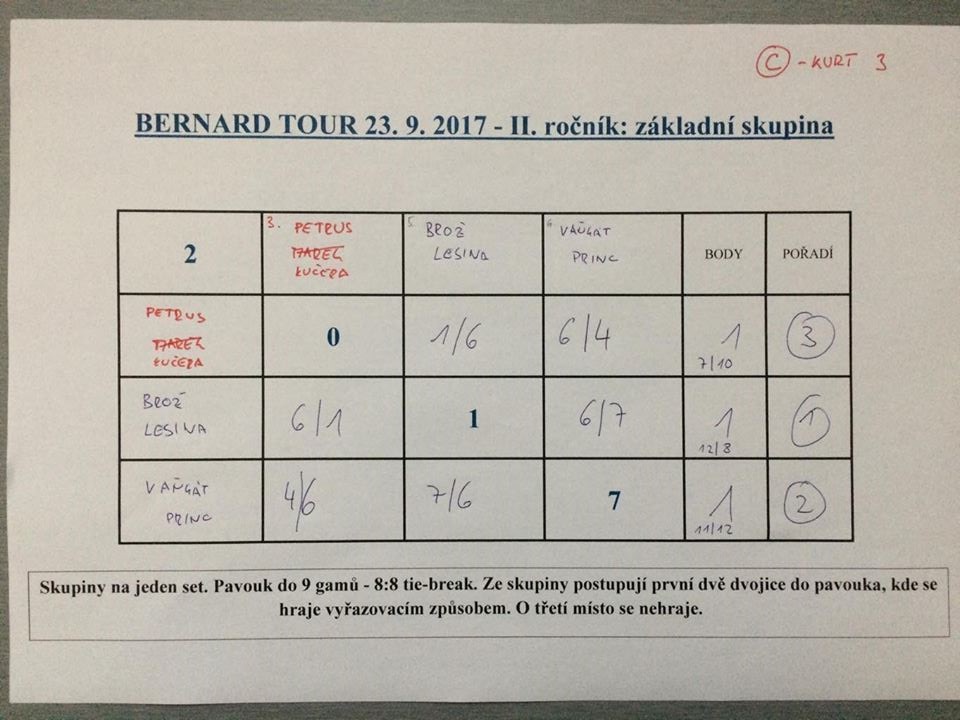 C - KURT 3
BERNARD TOUR 23. 9. 2017 - II. ročník: základní skupina
2
3. PETRUS
KUČERA
5. BROŽ
LESINA
VAŇGÁT
PRINC
BODY
POŘADÍ
PETRUS
KUČERA
0
1/6
6/4
1
7/10
3
BROŽ
LESINA
6/1
1
6/7
1
12/8
1
VAŇGÁT
PRINC
4/6
7/6
7
1
11/12
2
Skupiny na jeden set. Pavouk do 9 gamů - 8:8 tie-break. Ze skupiny postupují první dvě dvojice do pavouka, kde se
hraje vyřazovacím způsobem. O třetí místo se nehraje.